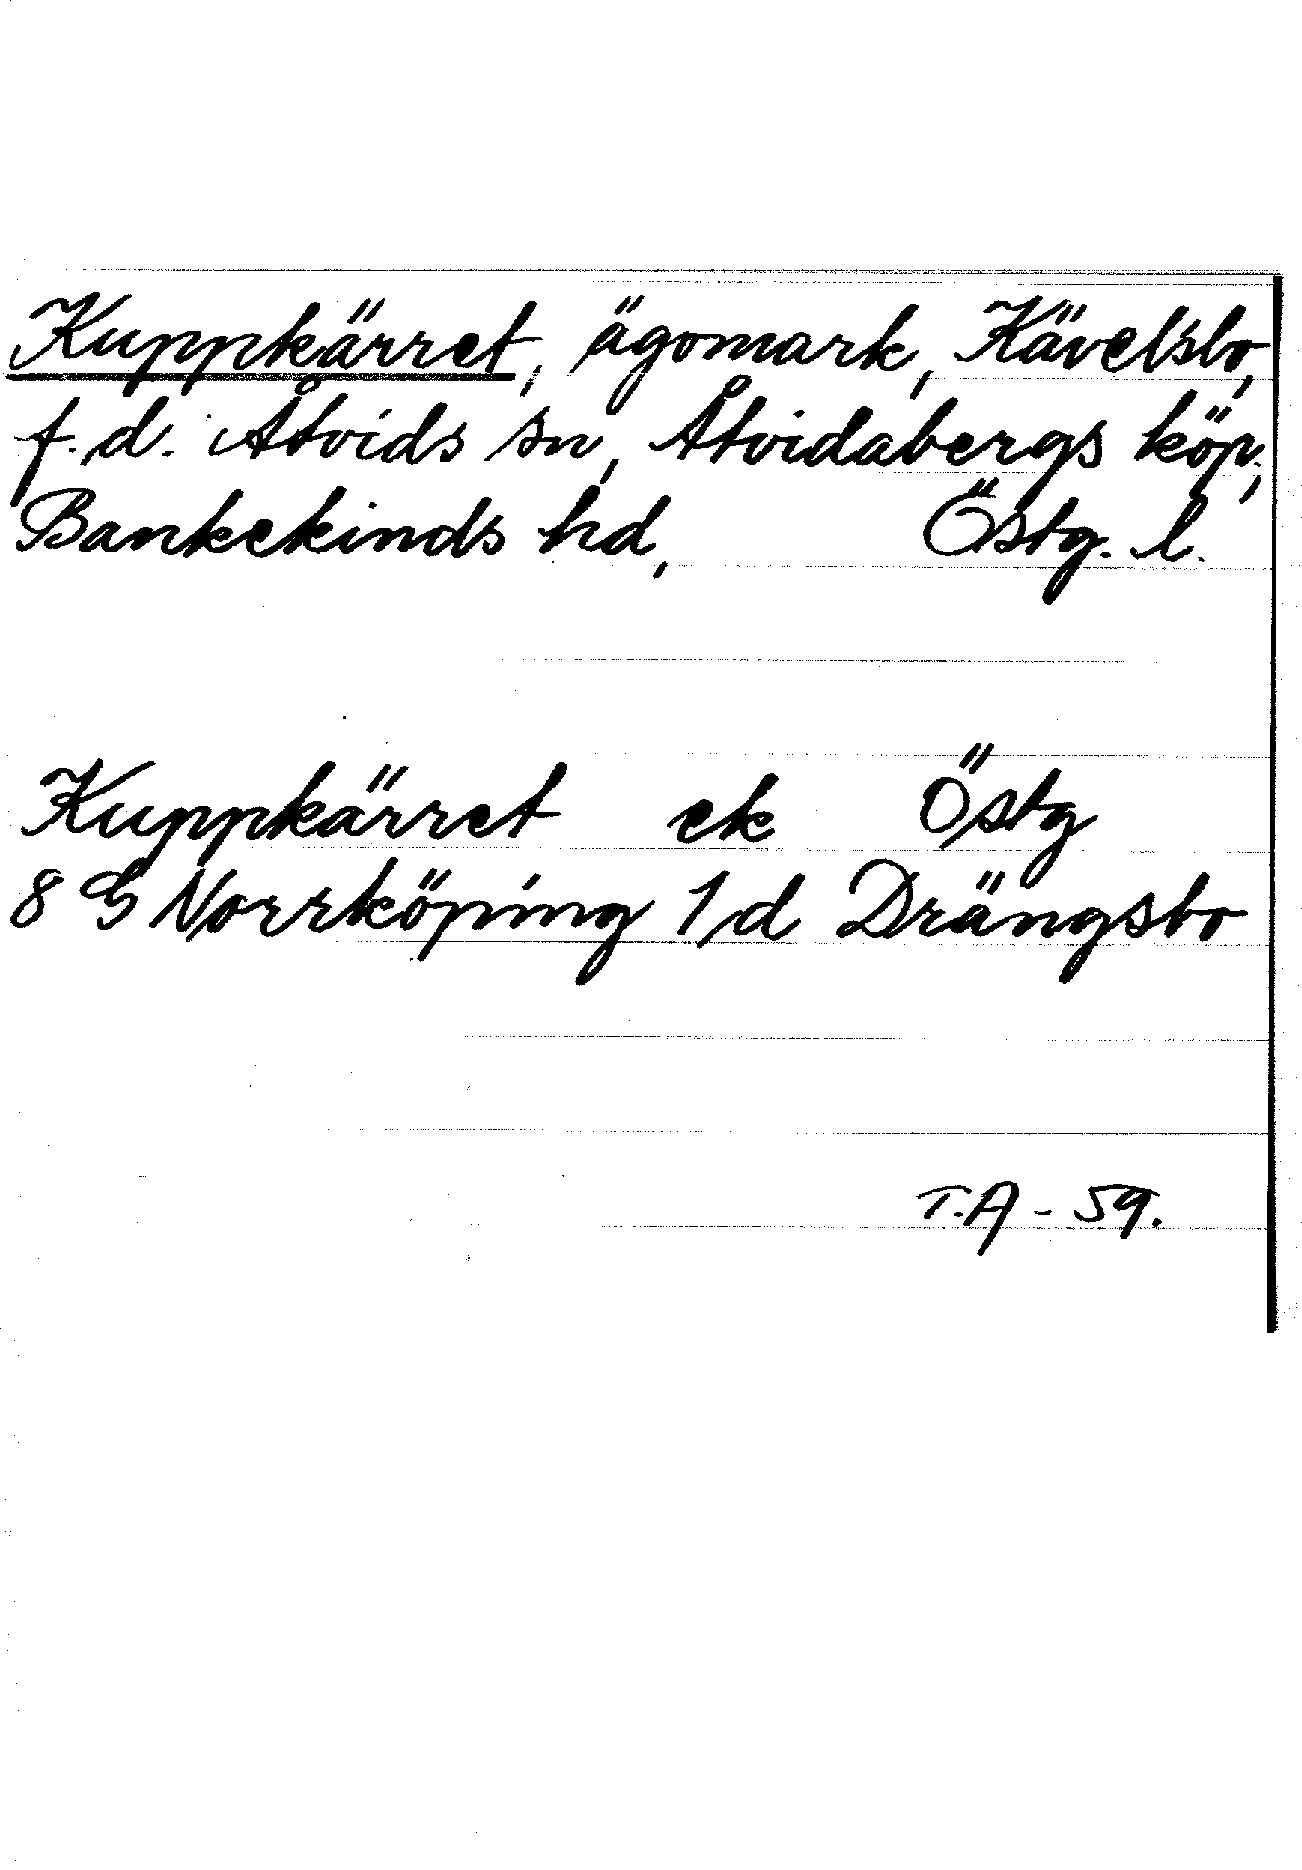 Kuppkärret, ägomark, Kävelsbo,
f.d. Åtvids sn, Åtvidabergs köp,
Bankekinds hd, Östg. l.
Kuppkärret ek Östg
8 G Norrköping 1 d Drängsbo
T.A - 59.